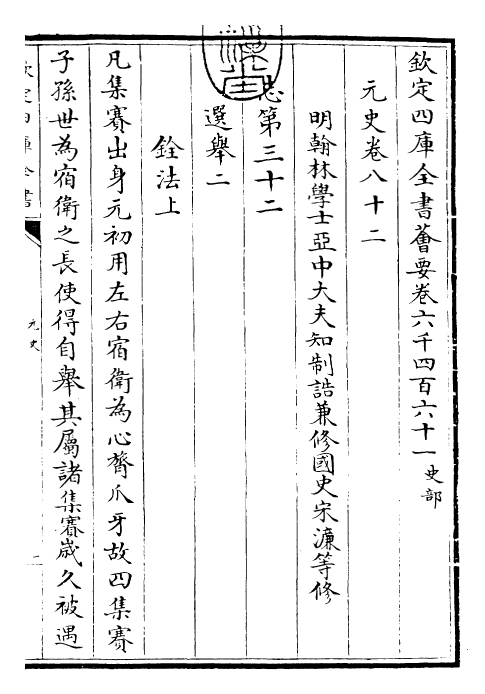 欽定四庫全書薈要卷六千四百六十一 史部
元史卷八十二
明翰林學士亞中大夫知制誥兼修國史宋濂等修
志第三十二
選舉二
銓法上
凡集賽出身元初用左右宿衛為心膂爪牙故四集賽
子孫世為宿衛之長使得自舉其屬諸集賽歲久被遇
欽定四庫全書
元史